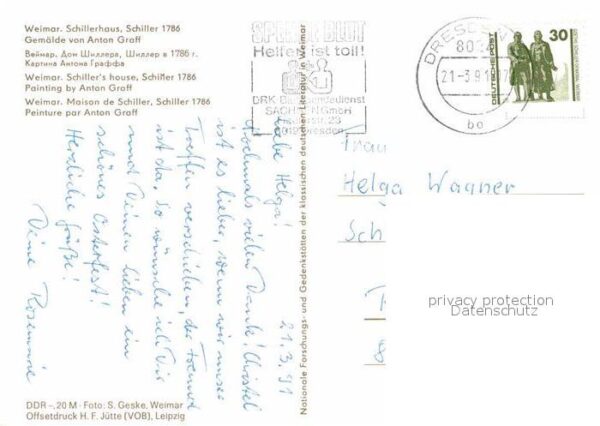 Weimar. Schillerhaus, Schiller 1786
Gemälde von Anton Graff
Веймар. Дом Шиллера, Шиллер в 1786 г.
Картина Антона Граффа
Weimar. Schiller's house, Schiller 1786
Painting by Anton Graff
Weimar. Maison de Schiller, Schiller 1786
Peinture par Anton Graff
SPENDE BLUT
Helfen ist toll!
DRK Blutspendedienst
SACHSEN GmbH
8019 Dresden
DRESDEN
8034
21-3.91
bo
DEUTSCHE POST
30
21.3.91
Liebe Helga!
Nochmals vielen Dank! Christel
ist es lieber, wenn wir unser
Treffen verschieben, der
ist da. So wünsche ich Dir
und Deinen Lieben ein
schönes Osterfest!
Herzliche Grüße!
Deine Rosemarie
Nationale Forschungs- und Gedenkstätten der klassischen deutschen Literatur in Weimar
Frau
Helga Wagner
Sch
privacy protection
Datenschutz
DDR –,20 M · Foto: S. Geske, Weimar
Offsetdruck H. F. Jütte (VOB), Leipzig